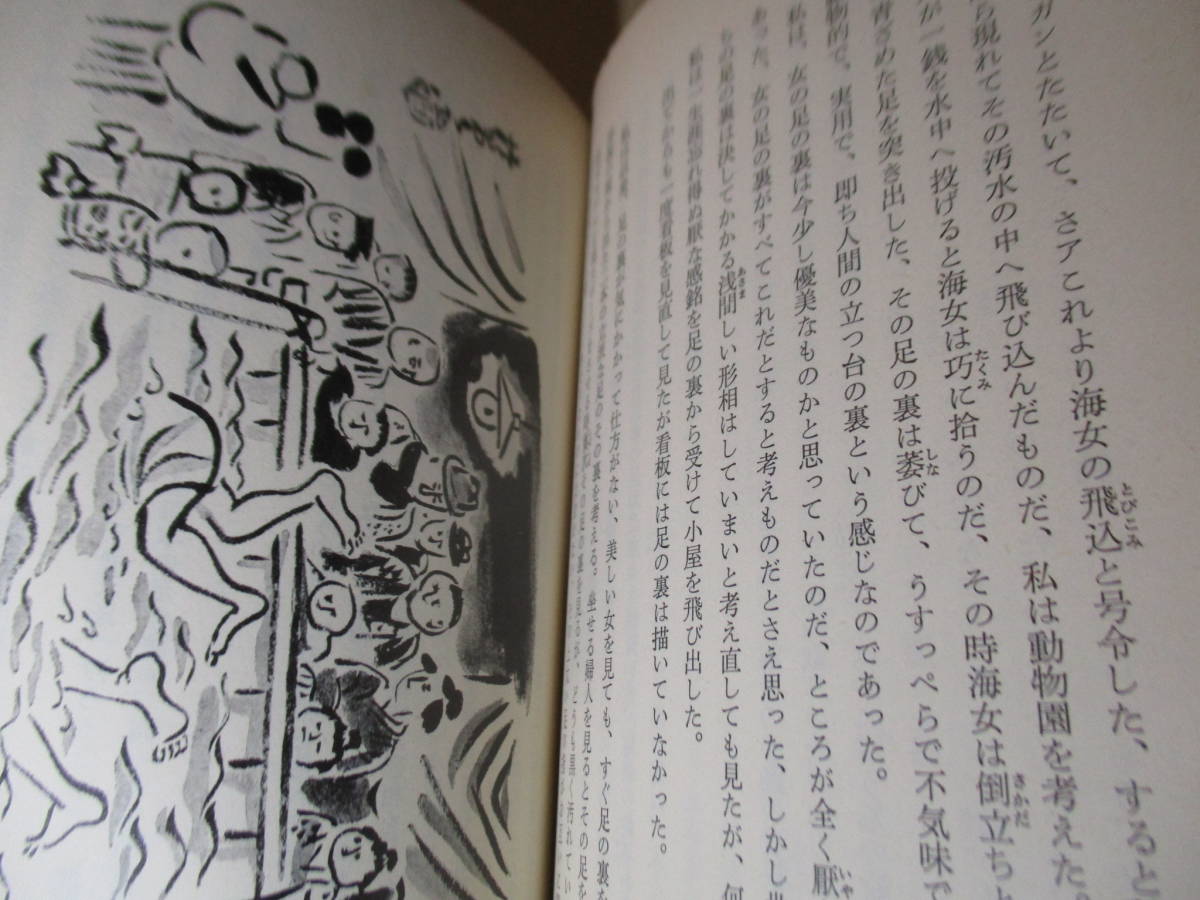 ガンとたたいて、さアこれより海女の飛込と号令した、すると
ら現れてその汚水の中へ飛び込んだものだ、私は動物園を考えた。
が一銭を水中へ投げると海女は巧に拾うのだ、その時海女は倒立ちと
青ざめた足を突き出した、その足の裏は萎びて、うすっぺらで不気味で
物的で、実用で、即ち人間の立つ台の裏という感じなのであった。
私は、女の足の裏は今少し優美なものかと思っていたのだ、ところが全く厭
あった、女の足の裏がすべてこれだとすると考えものだとさえ思った、しかし
もの足の裏は決してかかる浅間しい形相はしていまいと考え直しても見たが、何
私は一生涯忘れ得ぬ厭な感銘を足の裏から受けて小屋を飛び出した。
出てからも一度看板を見直して見たが看板には足の裏は描いていなかった。
足の裏が気にかかって仕方がない、美しい女を見ても、すぐ足の裏を
足のその裏を考える。坐せる婦人を見るとその足を
足の裏を見るが、どうも黒く汚れてい